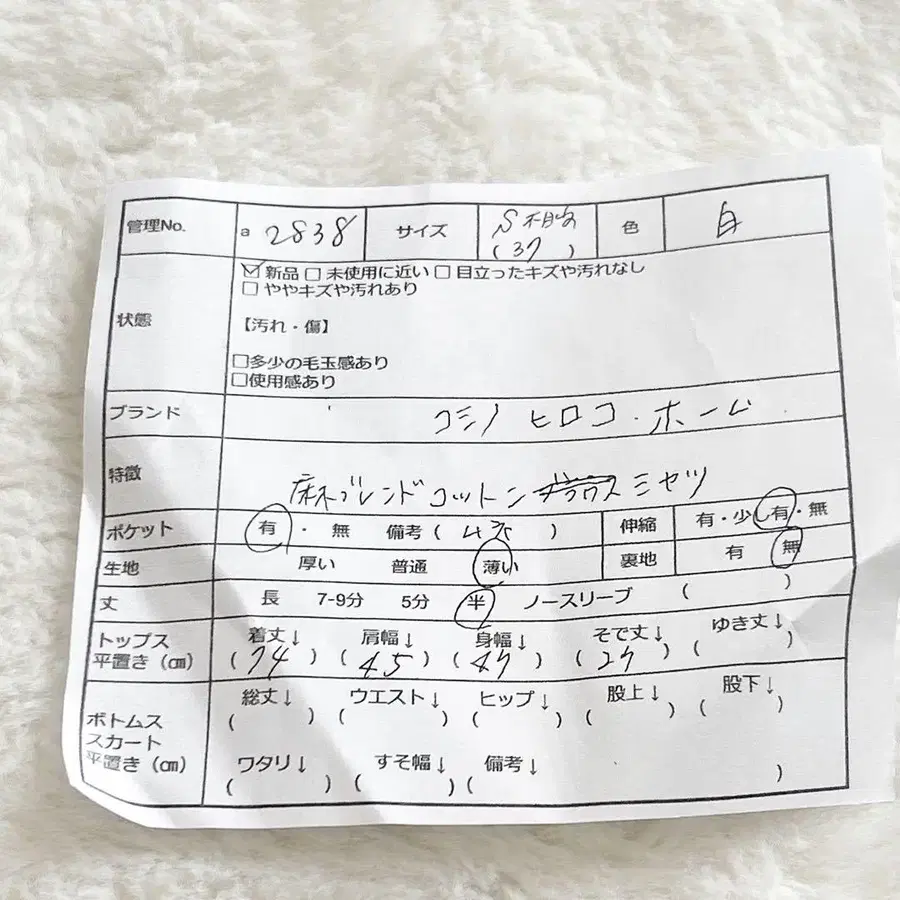 管理No. a 2838 サイズ S相当 (37) 色 白
状態 ☑新品 □未使用に近い □目立ったキズや汚れなし
□ややキズや汚れあり
【汚れ・傷】
□多少の毛玉感あり
□使用感あり
ブランド コシノ ヒロコ・ホーム
特徴 麻ブレンドコットン シャツ
ポケット 有・無 備考( ) 伸縮 有・少し有・無
生地 厚い 普通 薄い 裏地 有 無
丈 長 7-9分 5分 半 ノースリーブ ( )
トップス 着丈↓ 肩幅↓ 身幅↓ そで丈↓ ゆき丈↓
平置き(㎝) (74) (45) (47) (27) ( )
ボトムス 総丈↓ ウエスト↓ ヒップ↓ 股上↓ 股下↓
スカート ( ) ( ) ( ) ( ) ( )
平置き(㎝) ワタリ↓ すそ幅↓ 備考↓
( ) ( ) ( )